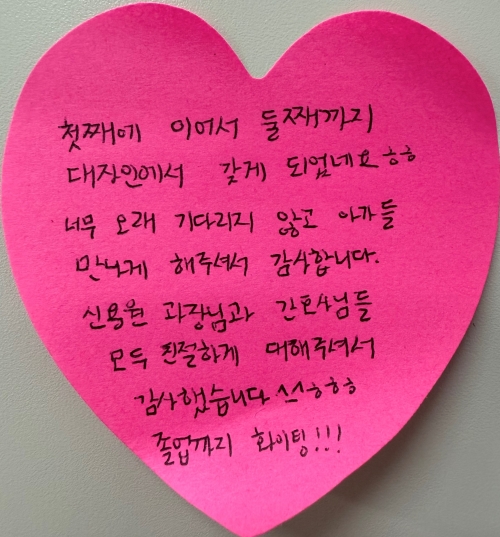 첫째에 이어서 둘째까지
대장안에서 갖게 되었네요ㅎㅎ
너무 오래 기다리지 않고 아가들
만나게 해주셔서 감사합니다.
신용원 과장님과 간호사님들
모두 친절하게 대해주셔서
감사했습니다^^ㅎㅎㅎ
졸업까지 화이팅!!!